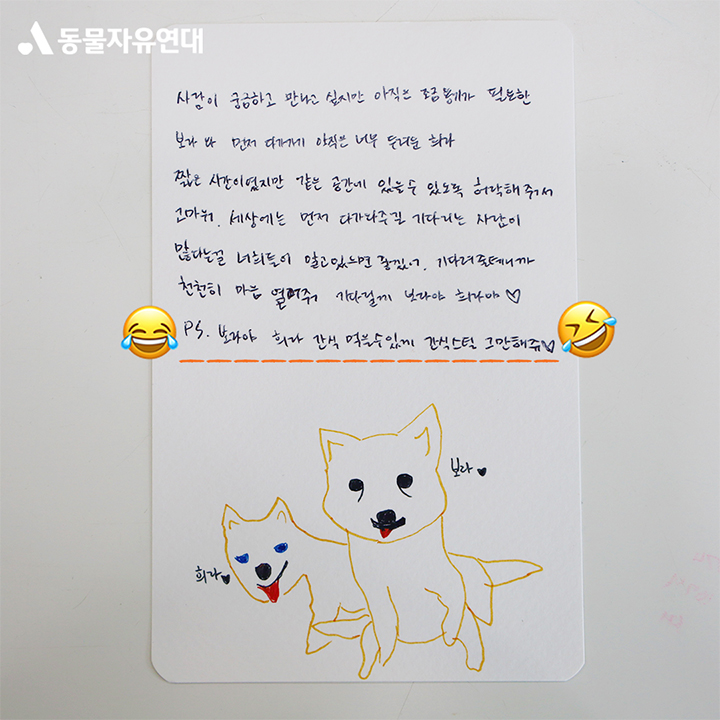 동물자유연대
사람이 궁금하고 만나고 싶지만 아직은 조금 용기가 필요한
보라 와 먼저 다가가기 아직은 너무 두려운 희라
짧은 시간이였지만 같은 공간에 있을수 있도록 허락해 주어서
고마워. 세상에는 먼저 다가와주길 기다리는 사람이
많다는걸 너희들이 알고있으면 좋겠어. 기다려줄테니까
천천히 마음 열어줘 기다릴게 보라야 희라야♡
PS. 보라야 희라 간식 먹을수있게 간식스틸 그만해쥬♡
보라♥
희라♥